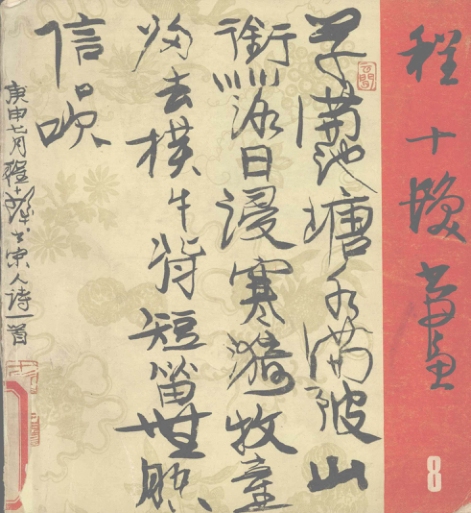 程十髮書畫
8
草满池塘水满陂山
銜落日浸寒漪牧童
歸去横牛背短笛無腔
信口吹
庚申七月程十髮書宋人诗一首